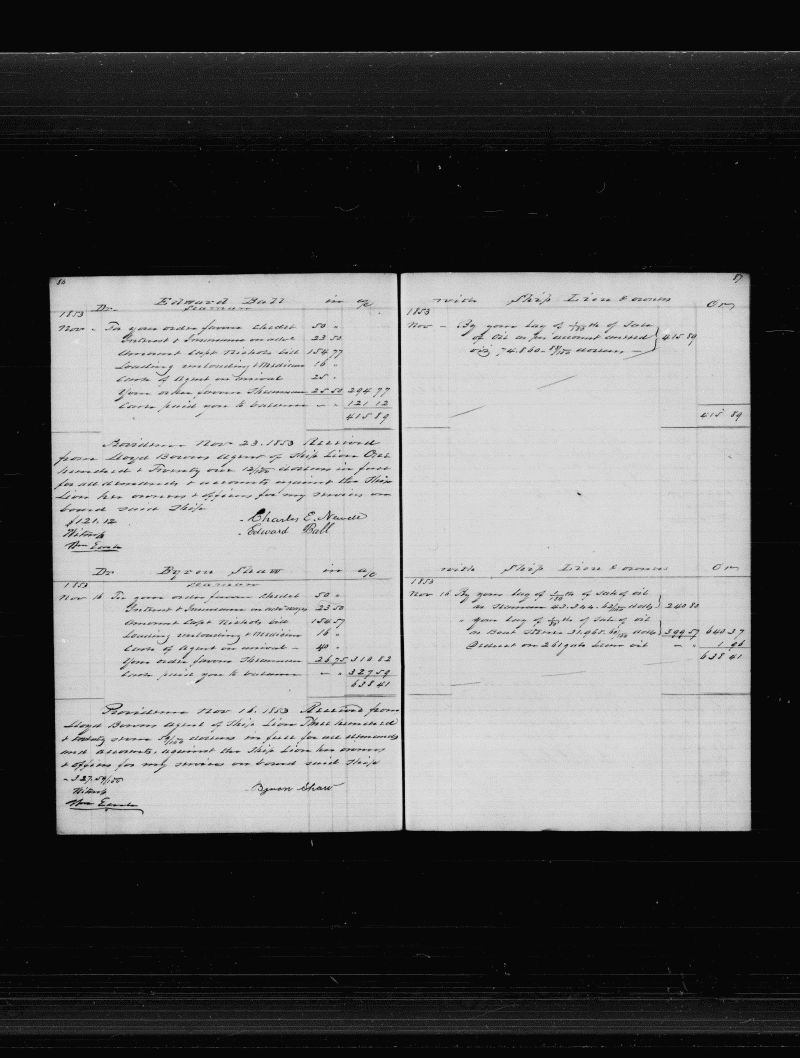 86
Edward Ball in a/c
Dr Seaman
1853
Nov - To your order favour Chedel 50 "
Interest & Insurance on adv. 23 50
Amount Capt Nichols bill 154 77
Loading unloading & Medicine 16 "
Cash of Agent on arrival 25 "
Your order favour 25 50 294 77
Cash paid you to balance - " 121 12
415 89
Providence Nov 23. 1853 Received
from Lloyd Bowers Agent of Ship Lion One
hundred & Twenty one 12/100 dollars in full
for all demands & accounts against the Ship
Lion her owners & officers for my services on
board said Ship
$121.12 Charles E. Newell
Witness Edward Ball
Wm Earle
Dr Byron Shaw in a/c
Seaman
1853
Nov 16 To your order favour Chedel 50 "
Interest & Insurance on adv. 23 50
Amount Capt Nichols bill 154 57
Loading unloading & Medicine 16 "
Cash of Agent on arrival - 40 "
Your order favour 26 75 310 82
Cash paid you to balance - " 327 59
638 41
Providence Nov 16. 1853 Received from
Lloyd Bowers Agent of Ship Lion Three hundred
& twenty seven 59/100 dollars in full for all demands
and accounts, against the Ship Lion her owners
& officers for my services on board said Ship
- 327.59/100
Witness Byron Shaw
Wm Earle
87
with Ship Lion & owners Cr
1853
Nov - By your lay of th of Sale
of Oil as per account 415 89
viz 74.860 dollars -
415 89
with Ship Lion & owners Cr
1853
Nov 16 By your lay of th of Sale of oil
as Seaman 43.344. 62/100 dolls 240 80
" your lay of th of Sale of oil
as Boat Steerer 31.965. dolls 399 57 640 37
Deduct on 261 galls oil - " 1 96
638 41